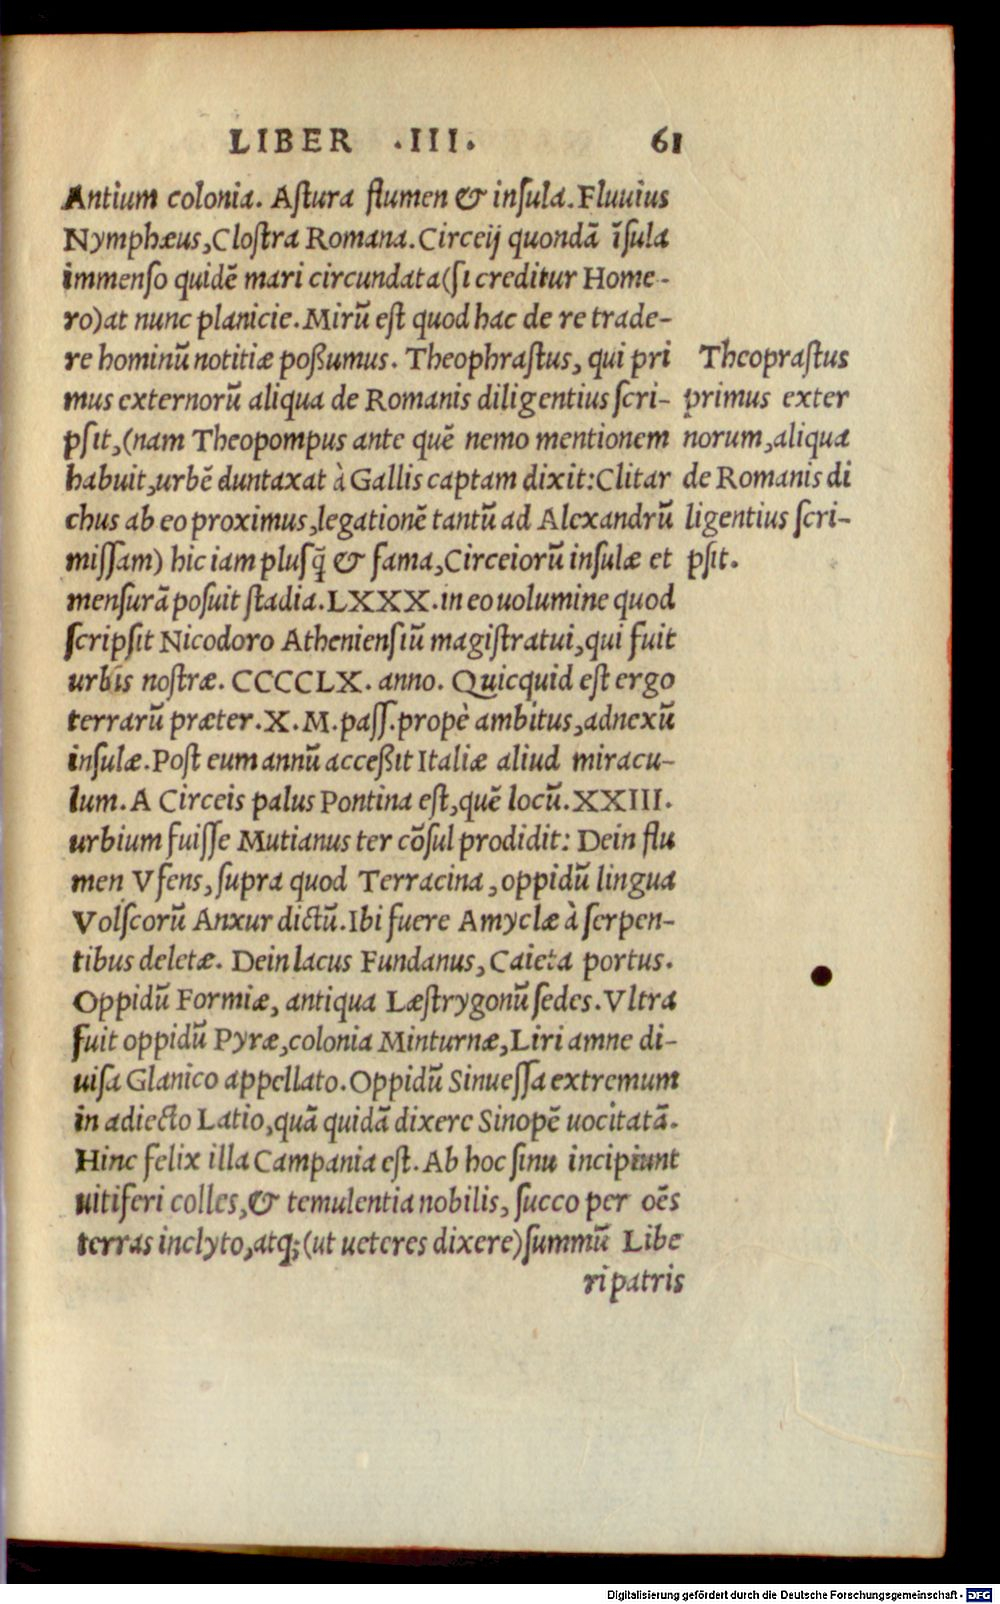 LIBER .III. 61
Antium colonia. Aſtura flumen & inſula. Fluuius
Nymphæus, Cloſtra Romana. Circeij quondā īſula
immenſo quidē mari circundata (ſi creditur Home-
ro) at nunc planicie. Mirū eſt quod hac de re trade-
re hominū notitiæ poßumus. Theophraſtus, qui pri
mus externorū aliqua de Romanis diligentius ſcri-
pſit, (nam Theopompus ante quē nemo mentionem
habuit, urbē duntaxat à Gallis captam dixit: Clitar
chus ab eo proximus, legationē tantū ad Alexandrū
miſſam) hic iam pluſq̃ & fama, Circeiorū inſulæ et
menſurā poſuit ſtadia. LXXX. in eo uolumine quod
ſcripſit Nicodoro Athenienſiū magiſtratui, qui fuit
urbis noſtræ. CCCCLX. anno. Quicquid eſt ergo
terrarū præter. X. M. paſſ. propè ambitus, adnexū
inſulæ. Poſt eum annū acceßit Italiæ aliud miracu-
lum. A Circeis palus Pontina eſt, quē locū. XXIII.
urbium fuiſſe Mutianus ter cōſul prodidit: Dein flu
men Vfens, ſupra quod Terracina, oppidū lingua
Volſcorū Anxur dictū. Ibi fuere Amyclæ à ſerpen-
tibus deletæ. Dein lacus Fundanus, Caieta portus.
Oppidū Formiæ, antiqua Læſtrygonū ſedes. Vltra
fuit oppidū Pyræ, colonia Minturnæ, Liri amne di-
uiſa Glanico appellato. Oppidū Sinueſſa extremum
in adiecto Latio, quā quidā dixere Sinopē uocitatā.
Hinc felix illa Campania eſt. Ab hoc ſinu incipiunt
uitiferi colles, & temulentia nobilis, ſucco per oēs
terras inclyto, atq; (ut ueteres dixere) ſummū Libe
ri patris
Theopraſtus
primus exter
norum, aliqua
de Romanis di
ligentius ſcri-
pſit.
Digitalisierung gefördert durch die Deutsche Forschungsgemeinschaft - DFG